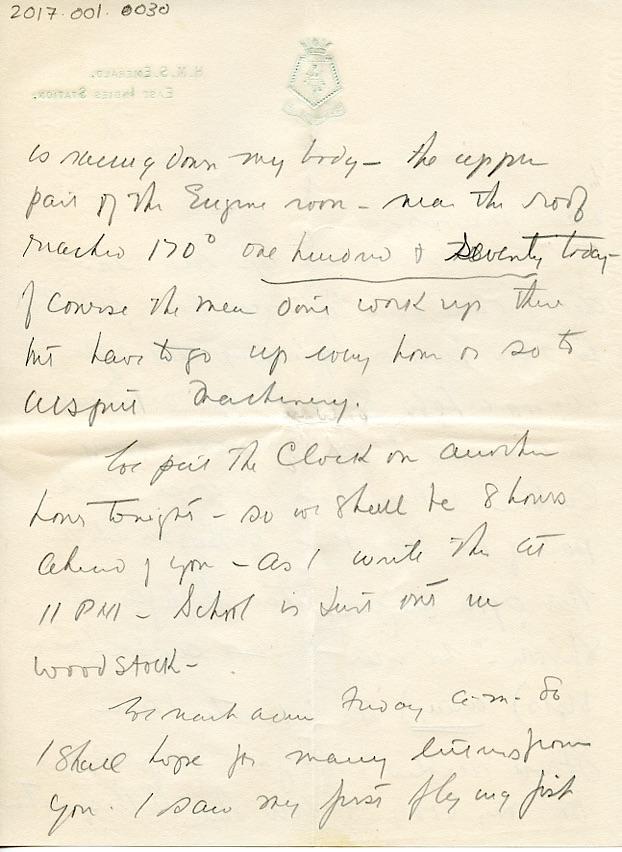 2017.001.0030
H.M.S. Emerald.
East Indies Station.
is racing down my body – the upper
part of the Engine room – near the roof
reached 170° one hundred & seventy today –
of course the men don't work up there
but have to go up every hour or so to
inspect machinery.
We put the Clock on another
hour tonight – so we shall be 8 hours
ahead of you – as I write this at
11 PM – School is just out in
Woodstock –
We reach Aden Friday a.m. so
I shall hope for many letters from
you. I saw my first flying fish